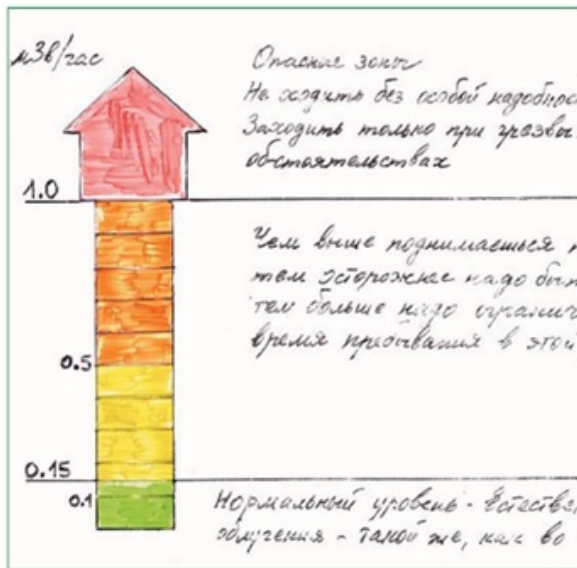 мЗв/час
Опасные зоны
Не ходить без особой надобнос
Заходить только при чрезвы
обстоятельствах
1.0
Чем выше поднимаешься п
тем осторожнее надо быть
тем больше надо огранич
время пребывания в этой
0.5
0.15
0.1
Нормальный уровень - Естестве
облучения - такой же, как во